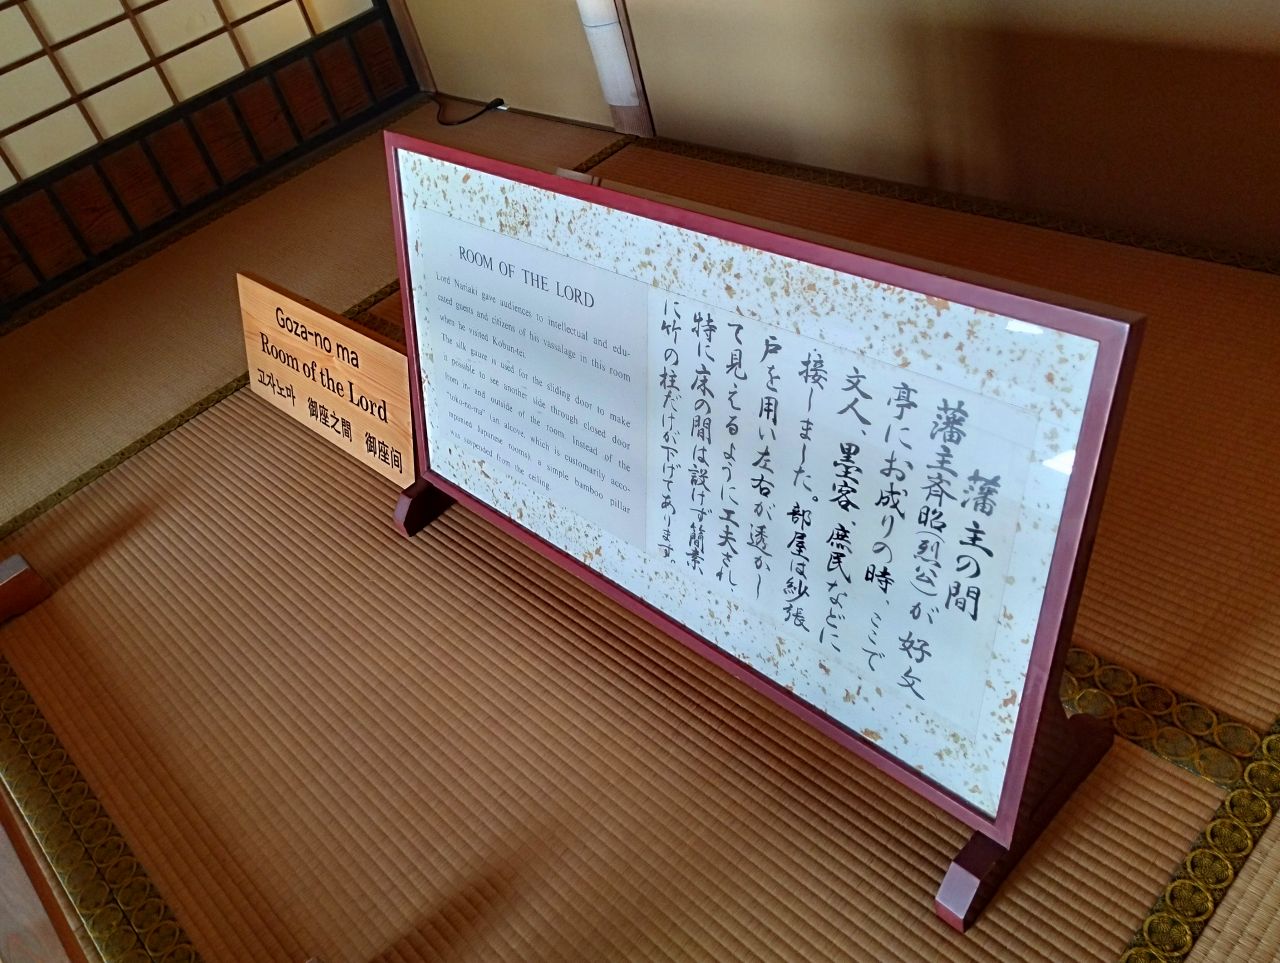 Goza-no ma
Room of the Lord
고자노마 御座之間 御座间
ROOM OF THE LORD
Lord Nariaki gave audiences to intellectual and edu-
cated guests and citizens of his vassalage in this room
when he visited Kobun-tei.
The silk gauze is used for the sliding door to make
it possible to see another side through closed door
from in- and outside of the room. Instead of the
"toko-no-ma" (an alcove, which is customarily acco-
mpanied Japanese rooms), a simple bamboo pillar
was suspended from the ceiling.
藩主の間
藩主斉昭(烈公)が好文
亭にお成りの時、ここで
文人、墨客、庶民などに
接しました。部屋は紗張
戸を用い左右が透かし
て見えるように工夫され、
特に床の間は設けず簡素
に竹の柱だけが下げてあります。